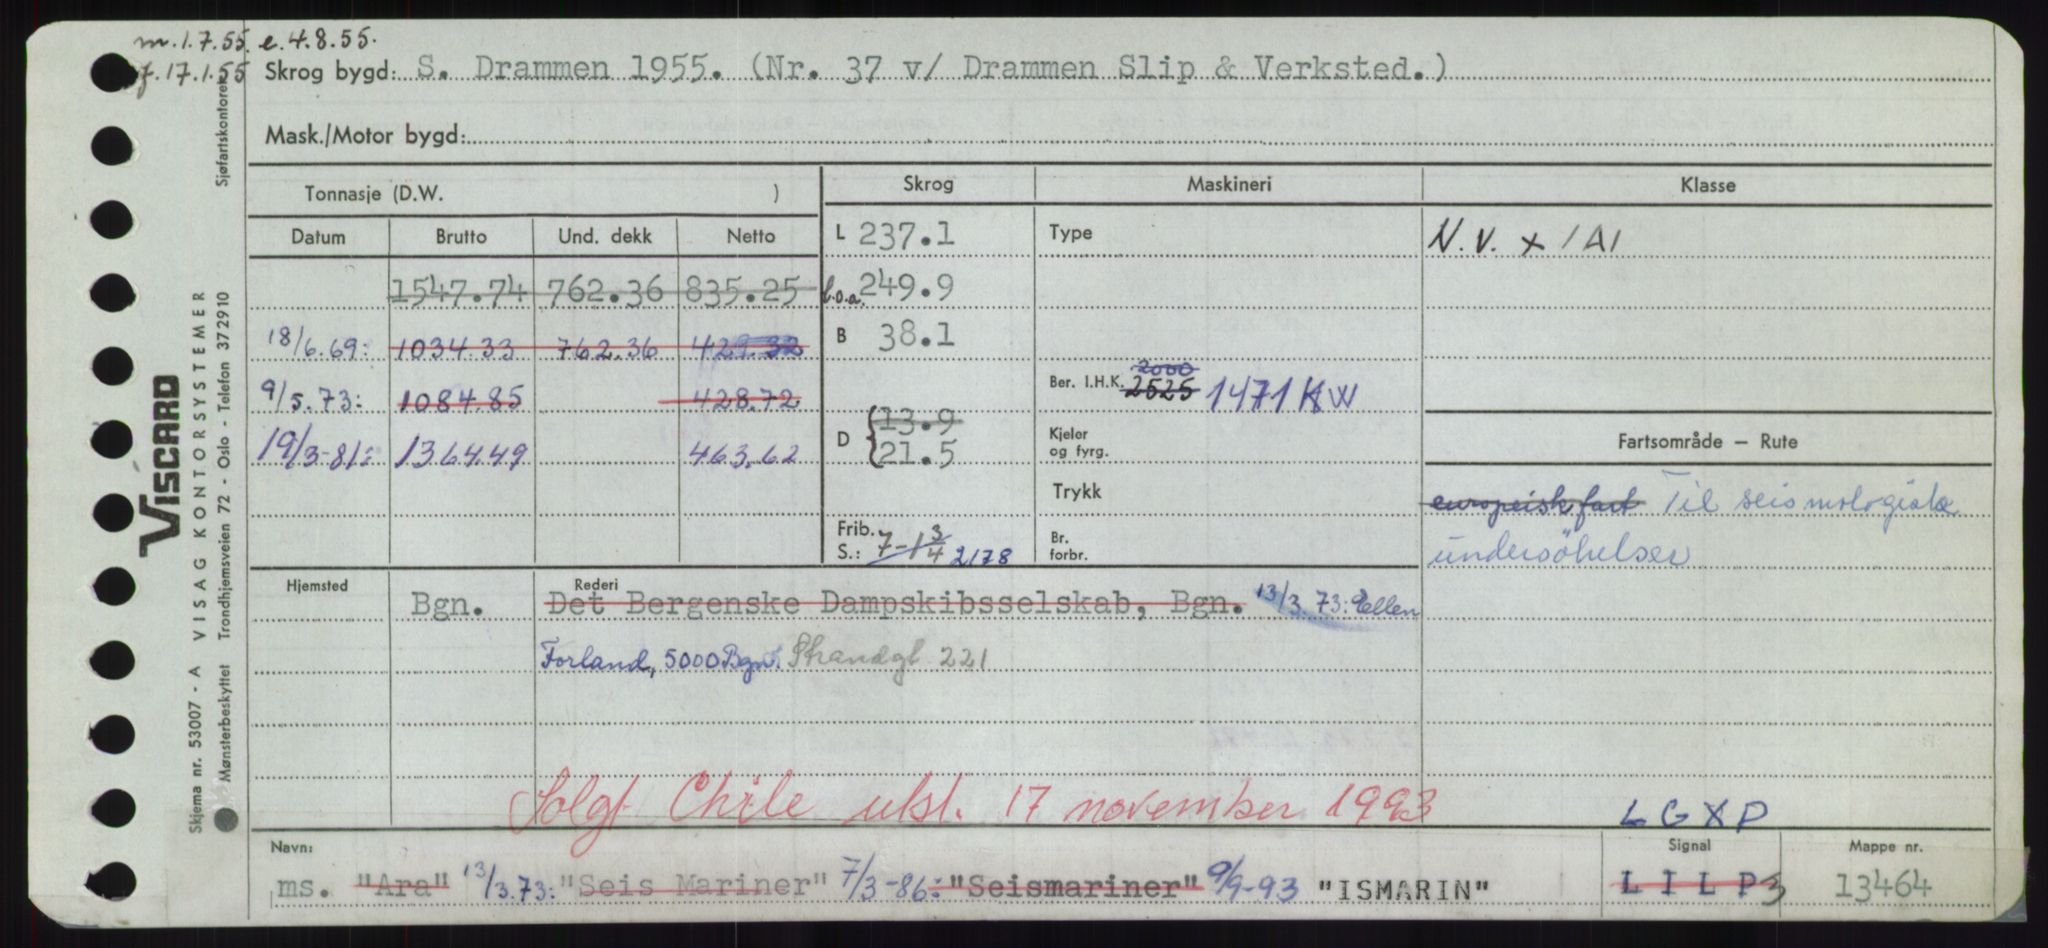 m.1.7.55. e.4.8.55.
f.17.1.55 Skrog bygd: S. Drammen 1955. (Nr. 37 v/ Drammen Slip & Verksted.)
Mask./Motor bygd:
Tonnasje (D.W. )
Skrog Maskineri Klasse
Datum Brutto Und. dekk Netto
L 237.1 Type N.V. x 1A1
1547.74 762.36 835.25 l.o.a. 249.9
18/6.69: 1034.33 762.36 429.32 B 38.1
9/5.73: 1084.85 428.72 Ber. I.H.K. 2000 2525 1471 KW
D 13.9
19/3-81: 1364.49 463.62 21.5
Kjeler og fyrg.
Fartsområde – Rute
Trykk
europeisk fart Til seismologiske
undersöhelser
Frib. S.: 7-1 3/4 2178
Br. forbr.
Hjemsted Bgn.
Rederi
Det Bergenske Dampskibsselskab, Bgn. 13/3.73: Ellen
Forland, 5000 Bgn. Strandgt 221
Solgt Chile utsl. 17 november 1993
LGXP
Navn: Signal Mappe nr.
ms. "Ara" 13/3.73: "Seis Mariner" 7/3-86: "Seismariner" 9/9-93 "ISMARIN" LILP3 13464
VISCARD
VISAG KONTORSYSTEMER
Skjema nr. 53007 - A
Mønsterbeskyttet Trondhjemsveien 72 - Oslo - Telefon 372910
Sjøfartskontoret